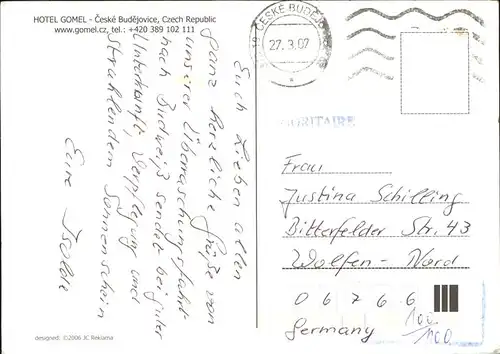 HOTEL GOMEL - České Budějovice, Czech Republic
www.gomel.cz, tel.: +420 389 102 111
ČESKÉ BUDĚJO
27.3.07
PRIORITAIRE
Euch Lieben allen
ganz herzliche Grüße von
unserer Überraschungsfahrt
nach Budweiß sendet bei guter
Unterkunft, Verpflegung und
strahlendem Sonnenschein
Eure Isolde
Frau
Justina Schilling
Bitterfelder Str. 43
Wolfen-Nord
06766
Germany
100
/100
designed: ©2006 JC Reklama